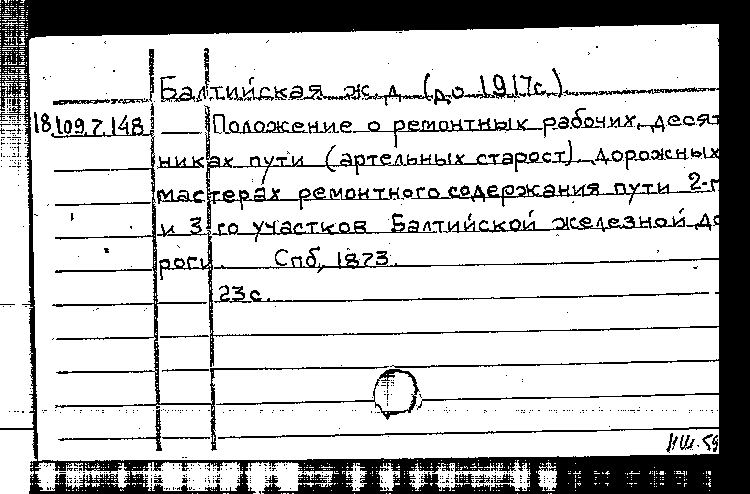 Балтийская ж.д. (до 1917г.)
18.109.7.148 Положение о ремонтных рабочих, десят
никах пути (артельных старост), дорожных
мастерах ремонтного содержания пути 2-г
и 3-го участков Балтийской железной до
роги. Спб, 1873.
23с.